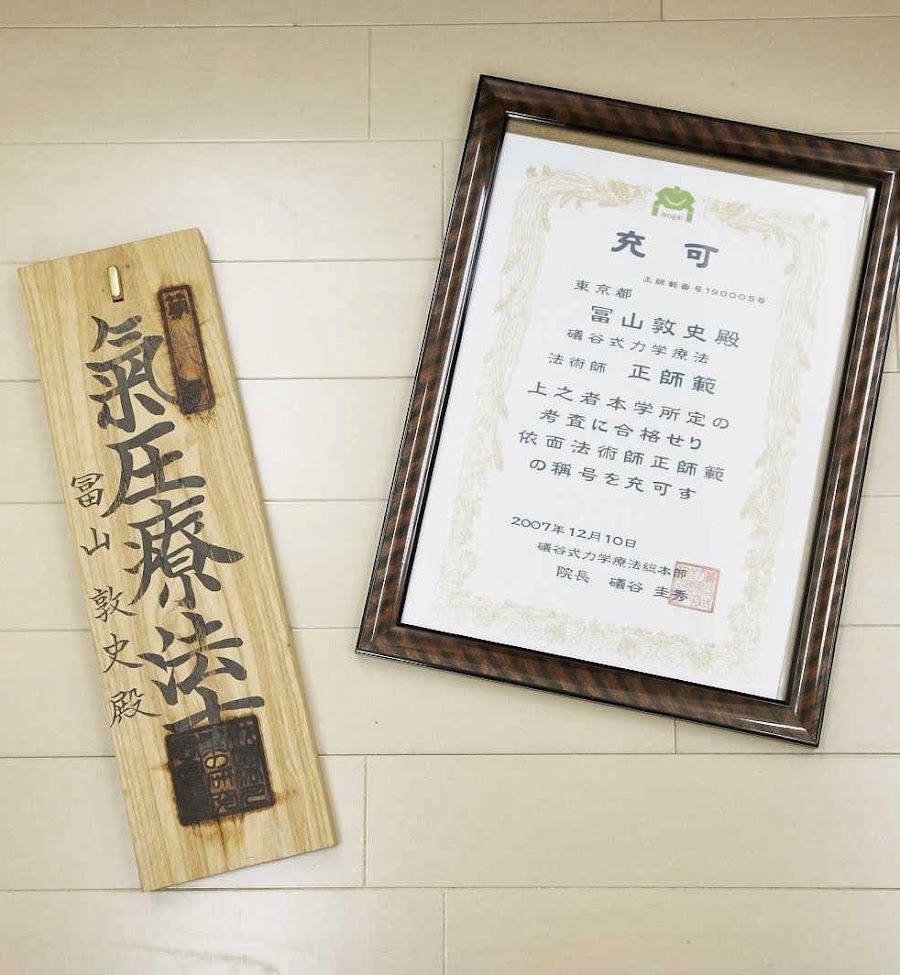 氣圧療法士
冨山敦史殿
isogai
充可
正師範番号190005号
東京都
冨山敦史殿
礒谷式力学療法
法術師 正師範
上之者本学所定の
考査に合格せり
依面法術師正師範
の稱号を充可す
2007年12月10日
礒谷式力学療法総本部
院長 礒谷 圭秀